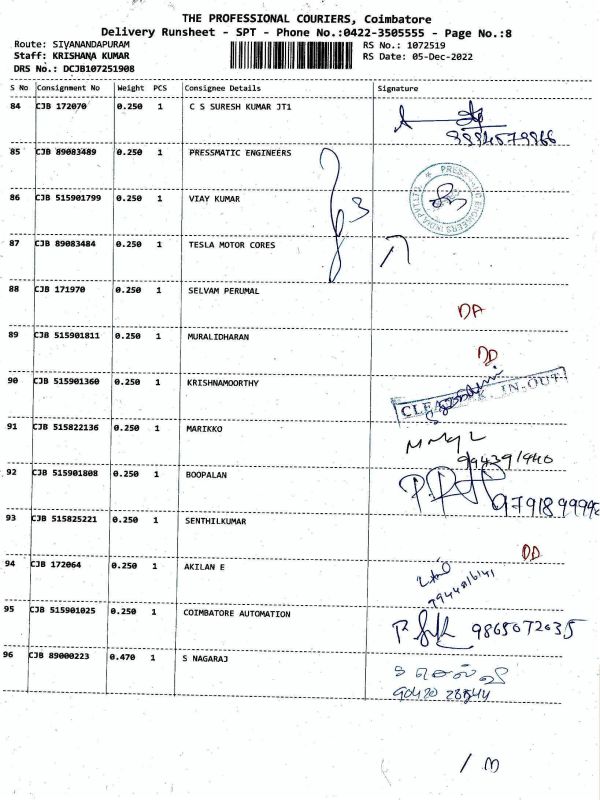 THE PROFESSIONAL COURIERS, Coimbatore
Delivery Runsheet - SPT - Phone No.:0422-3505555 - Page No.:8
Route: SIVANANDAPURAM RS No.: 1072519
Staff: KRISHANA KUMAR RS Date: 05-Dec-2022
DRS No.: DCJB107251908
S No Consignment No Weight PCS Consignee Details Signature
84 CJB 172070 0.250 1 C S SURESH KUMAR JT1
9894579866
85 CJB 89083489 0.250 1 PRESSMATIC ENGINEERS
86 CJB 515901799 0.250 1 VIJAY KUMAR 3
87 CJB 89083484 0.250 1 TESLA MOTOR CORES
88 CJB 171970 0.250 1 SELVAM PERUMAL DA
89 CJB 515901811 0.250 1 MURALIDHARAN DD
90 CJB 515901360 0.250 1 KRISHNAMOORTHY IN-OUT
91 CJB 515822136 0.250 1 MARIKKO
92 CJB 515901808 0.250 1 BOOPALAN
93 CJB 515825221 0.250 1 SENTHILKUMAR DD
94 CJB 172064 0.250 1 AKILAN E
95 CJB 515901025 0.250 1 COIMBATORE AUTOMATION 9865072035
96 CJB 89000223 0.470 1 S NAGARAJ